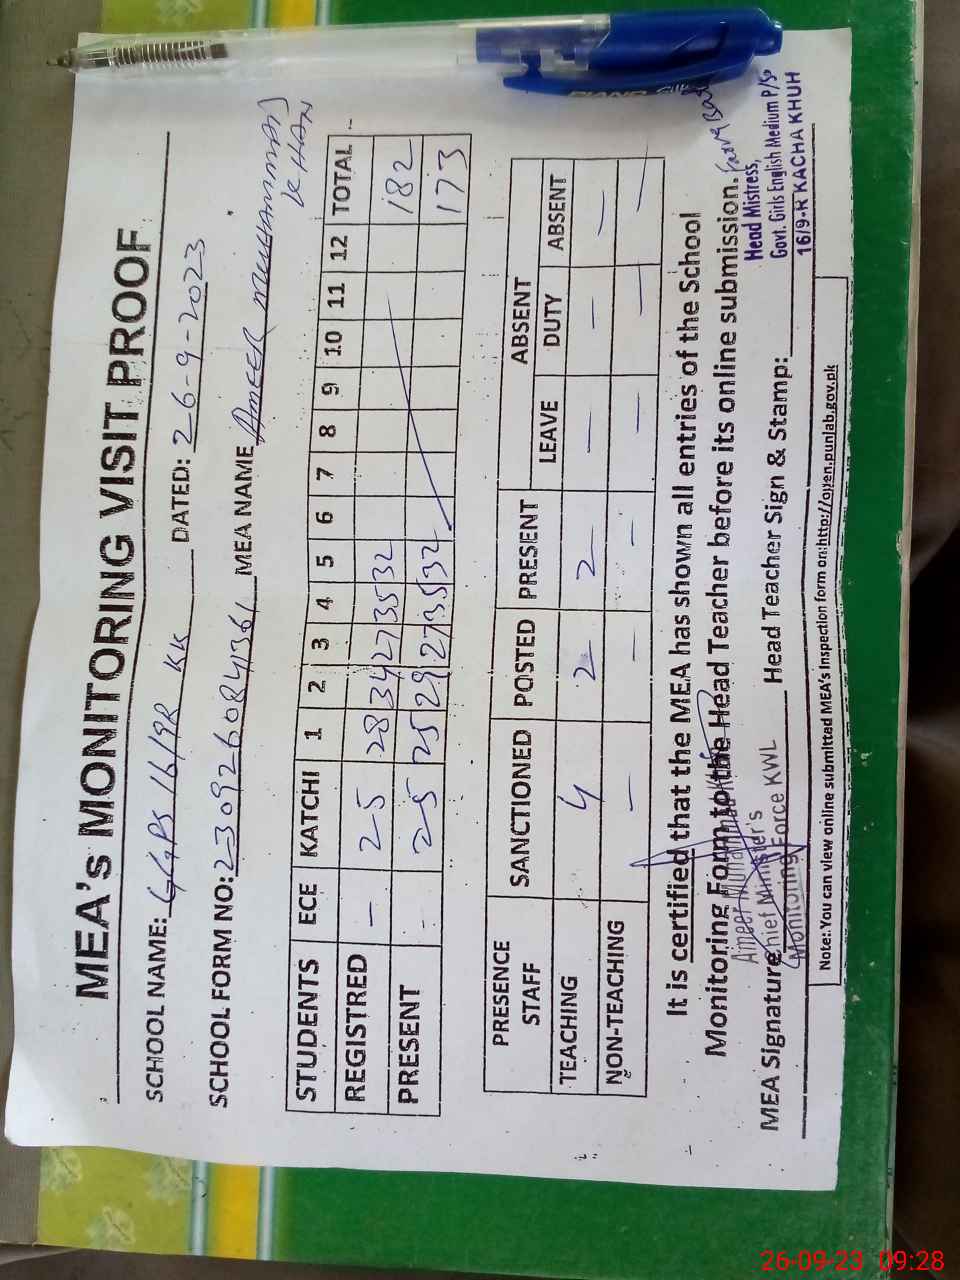 MEA's MONITORING VISIT PROOF
SCHOOL NAME: GGPS 16/9R KK DATED: 26-9-2023
SCHOOL FORM NO: MEA NAME AMEER MUHAMMAD KHAN
STUDENTS ECE KATCHI 1 2 3 4 5 6 7 8 9 10 11 12 TOTAL
REGISTRED - 25 28 34 27 35 32 182
PRESENT - 25 25 29 27 35 32 173
PRESENCE STAFF SANCTIONED POSTED PRESENT ABSENT
LEAVE DUTY ABSENT
TEACHING 4 2 2 - - -
NON-TEACHING - - - - - -
It is certified that the MEA has shown all entries of the School
Monitoring Form to the Head Teacher before its online submission.
MEA Signature Head Teacher Sign & Stamp:
Ameer Muhammad
Chief Minister's
Monitoring Force KWL
Head Mistress,
Govt. Girls English Medium P/S
16/9-R KACHA KHUH
Note: You can view online submittad MEA's Inspection form on:http://open.punjab.gov.pk
PIANO
26-09-23 09:28